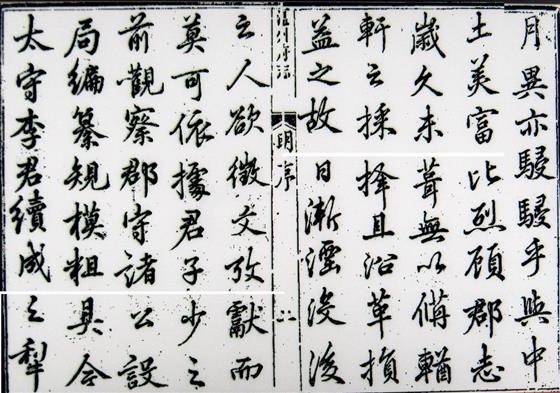 月異亦駸駸乎與中
土美富比烈顧郡志
歲久未葺無以備輶
軒之採擇且沿革損
益之故日漸湮没後
州府志
序
之人欲徵文攷獻而
莫可依據君子少之
前觀察郡守諸公設
局編纂規模粗具今
太守李君續成之犁